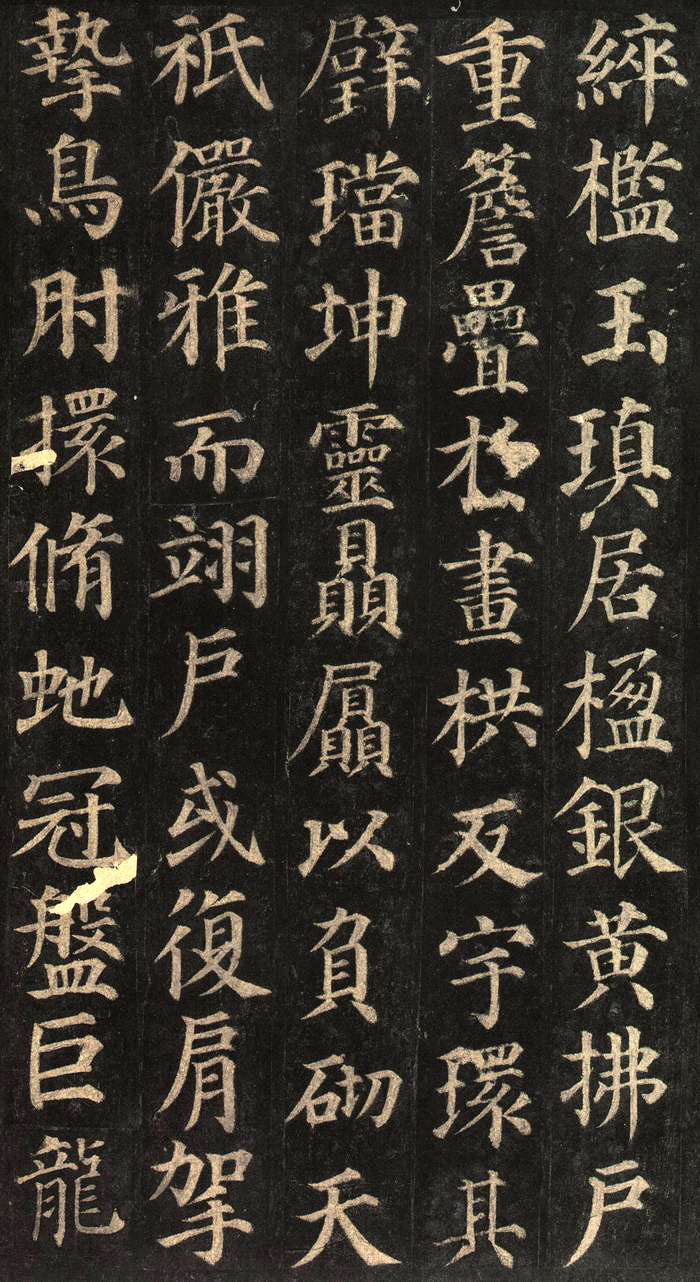 綷檻玉瑱居楹銀黃拂戶
重簷疊於畫栱反宇環其
璧璫坤靈贔屭以負砌天
祇儼雅而翊戶或復肩挐
摯鳥肘擐脩虵冠盤巨龍